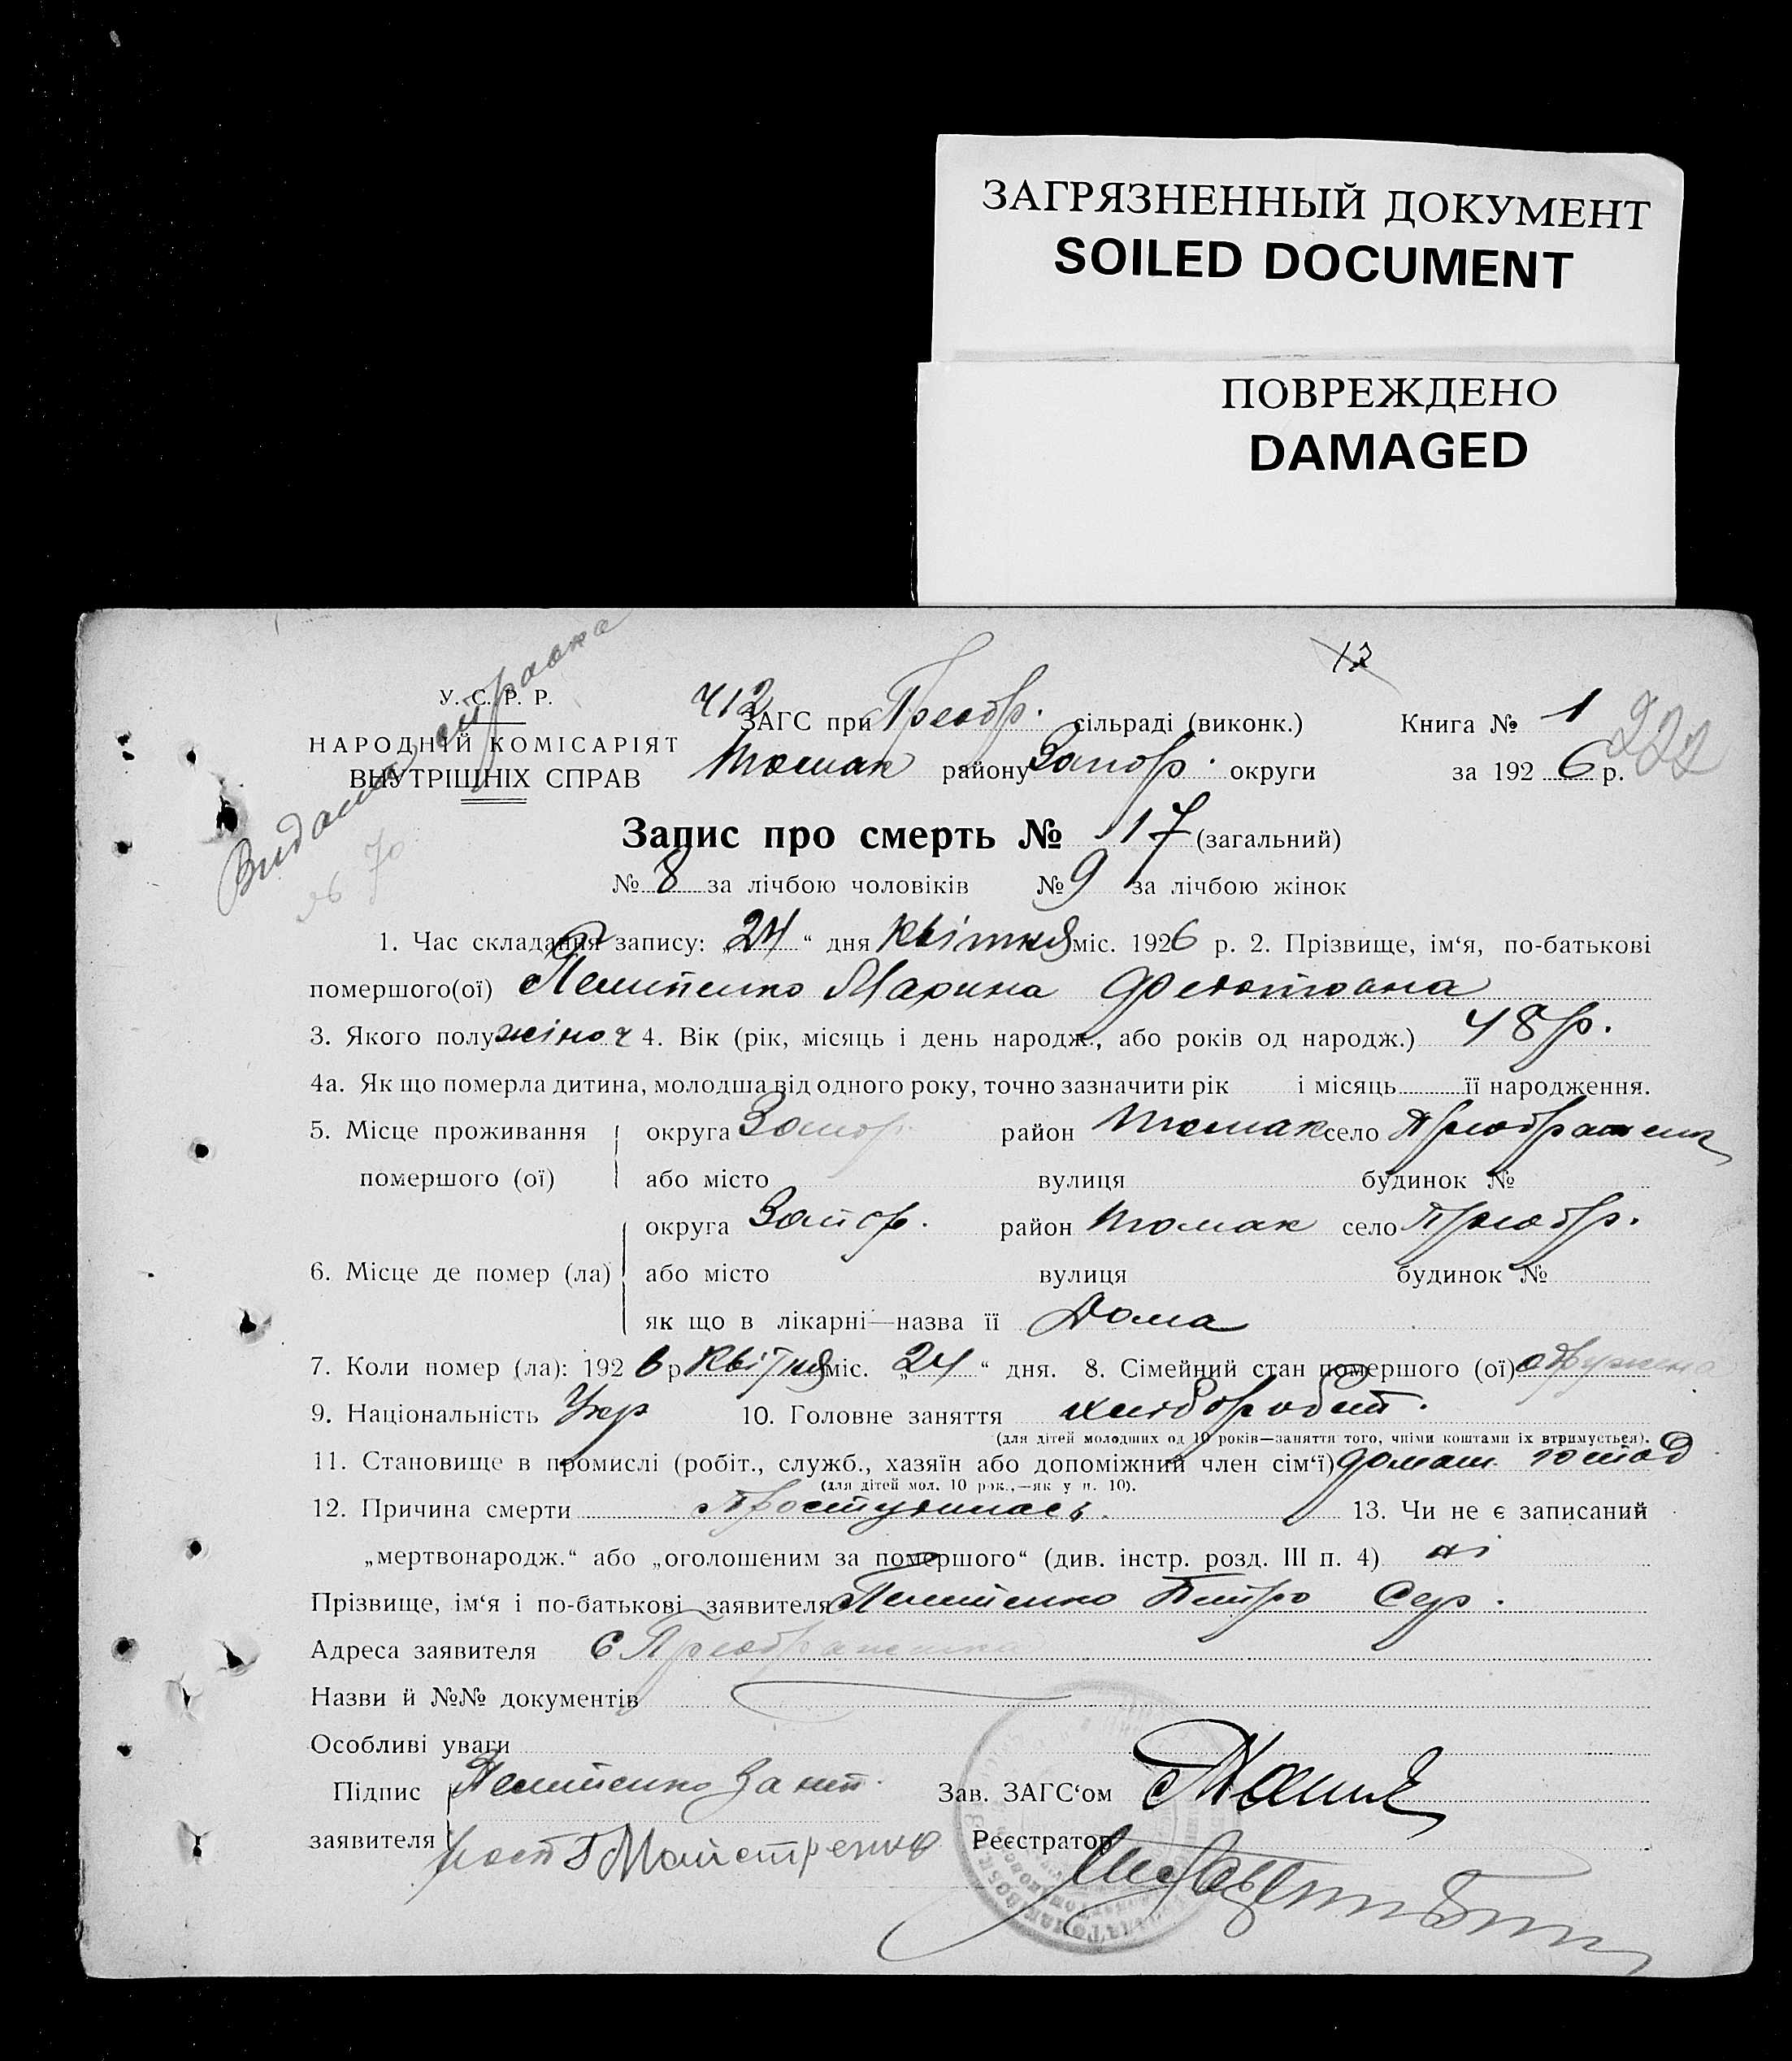 ЗАГРЯЗНЕННЫЙ ДОКУМЕНТ
SOILED DOCUMENT
ПОВРЕЖДЕНО
DAMAGED
12
Видана справка
У. С. Р. Р.
НАРОДНІЙ КОМІСАРІЯТ
ВНУТРІШНІХ СПРАВ
412
ЗАГС при Преобр. сільраді (виконк.) Книга № 1
Токмак району Запор. округи за 1926 р.
227
Запис про смерть № 17 (загальний)
№ 8 за лічбою чоловіків № 9 за лічбою жінок
1. Час складання запису: „24“ дня квітня міс. 1926 р. 2. Прізвище, ім‘я, по-батькові
помершого(ої) Марина Федотовна
3. Якого полу жіноч 4. Вік (рік, місяць і день народж., або років од народж.) 48 р.
4а. Як що померла дитина, молодша від одного року, точно зазначити рік і місяць її народження.
5. Місце проживання помершого (ої) округа Запор. район Токмак село
або місто вулиця будинок №
6. Місце де помер (ла) округа Запор. район Токмак село Преобр.
або місто вулиця будинок №
як що в лікарні—назва її Дома
7. Коли помер (ла): 1926 р квітня міс. „24“ дня. 8. Сімейний стан помершого (ої) одружена
9. Національність Укр 10. Головне заняття хлібороб
(для дітей молодших од 10 років—заняття того, чиїми коштами їх втримується).
11. Становище в промислі (робіт., служб., хазяїн або допоміжний член сім‘ї) домаш. господ
(для дітей мол. 10 рок.,—як у п. 10).
12. Причина смерти простудилась. 13. Чи не є записаний
„мертвонародж.“ або „оголошеним за помершого“ (див. інстр. розд. III п. 4) ні
Прізвище, ім‘я і по-батькові заявителя Петро Сер.
Адреса заявителя С
Назви й №№ документів
Особливі уваги
Підпис заявителя Майстренко
Зав. ЗАГС‘ом
Реєстратор